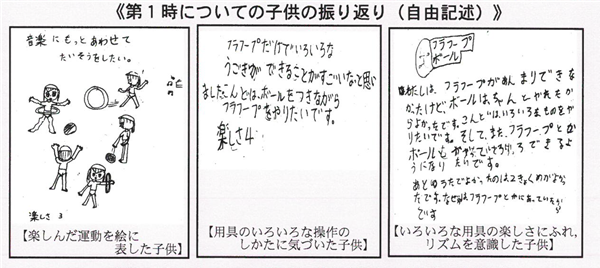 《第1時についての子供の振り返り（自由記述）》
音楽にもっとあわせて
たいそうをしたい。
楽しさ 3
【楽しんだ運動を絵に
表した子供】
フラフープだけでいろいろな
うごきが できることがすごいな、と思い
ました。こんどは、ボールをつきながら
フラフープをやりたいです。
楽しさ4
【用具のいろいろな操作の
しかたに気づいた子供】
フラフープ
ボール
わたしは、フラフープがあんまりできな
かったけど、ボールは、ちゃんとやれ
よかったです。こんどは、いろいろなものをや
りたいです。そして、また、フラフープとか
ボールも できるよ
うになり たいです。
です
【いろいろな用具の楽しさにふれ，
リズムを意識した子供】